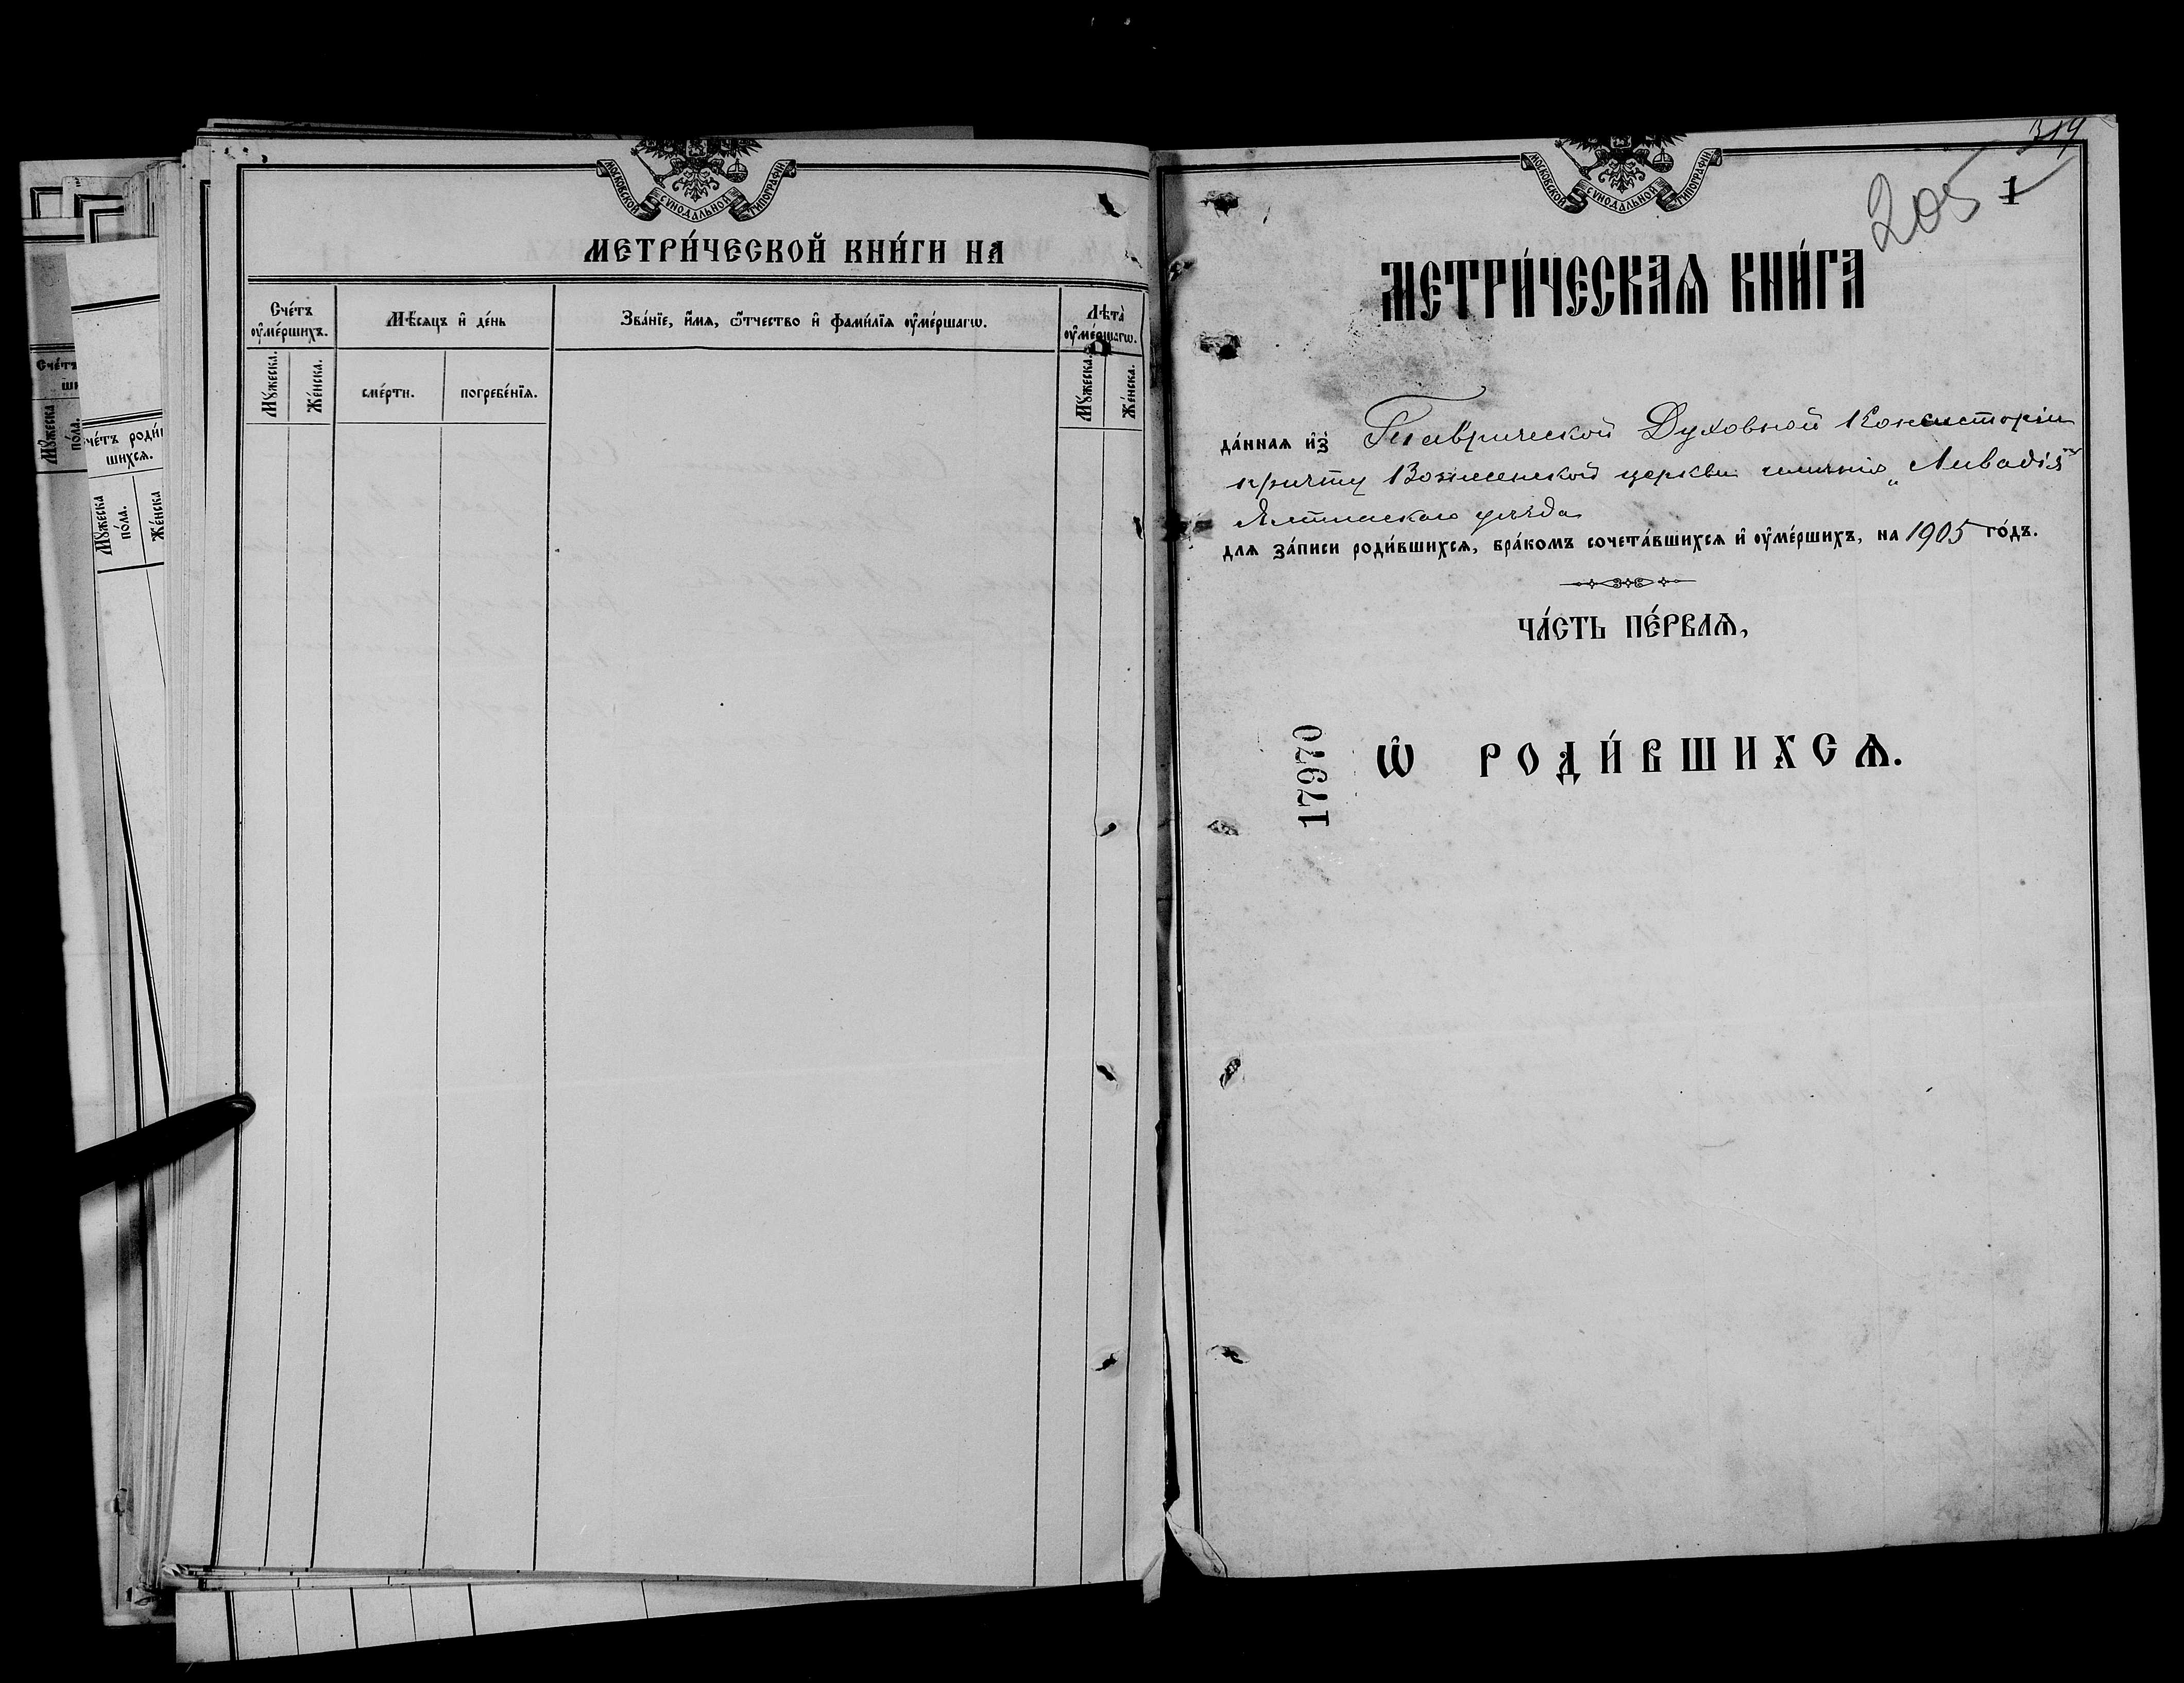 МОСКОВСКОЙ СѴНОДАЛЬНОЙ ТИПОГРАФІИ
МЕТРИ́ЧЕСКОЙ КНИ́ГИ НА
Сче́тъ оу҆ме́ршихъ.
Мѣ́сяцъ и҆ де́нь
Зва́нїе, и҆́мя, ѻ҆́тчество и҆ фами́лїя оу҆ме́ршагѡ.
Лѣта̀ оу҆ме́ршагѡ.
Мꙋ́жеска.
Же́нска.
сме́рти.
погребе́нїя.
Мꙋ́жеска.
Же́нска.
Сче́тъ
Мꙋ́жеска по́ла.
че́тъ роди́
шихсѧ.
Мꙋ́жеска по́ла.
Же́нска
МОСКОВСКОЙ СѴНОДАЛЬНОЙ ТИПОГРАФІИ
319
205
1
МЕТРИ́ЧЕСКАѦ КНИ́ГА
да́нная и҆з̾ Таврической Духовной Консисторіи
причту Вознесенской церкви имѣнія „Ливадія"
Ялтинскаго уѣзда
для за́писи роди́вшихся, бра́комъ сочета́вшихся и҆ оу҆ме́ршихъ, на 1905 го́дъ.
ЧА́СТЬ ПЕ́РВАѦ,
Ѡ҆ РОДИ́ВШИХСѦ.
17970